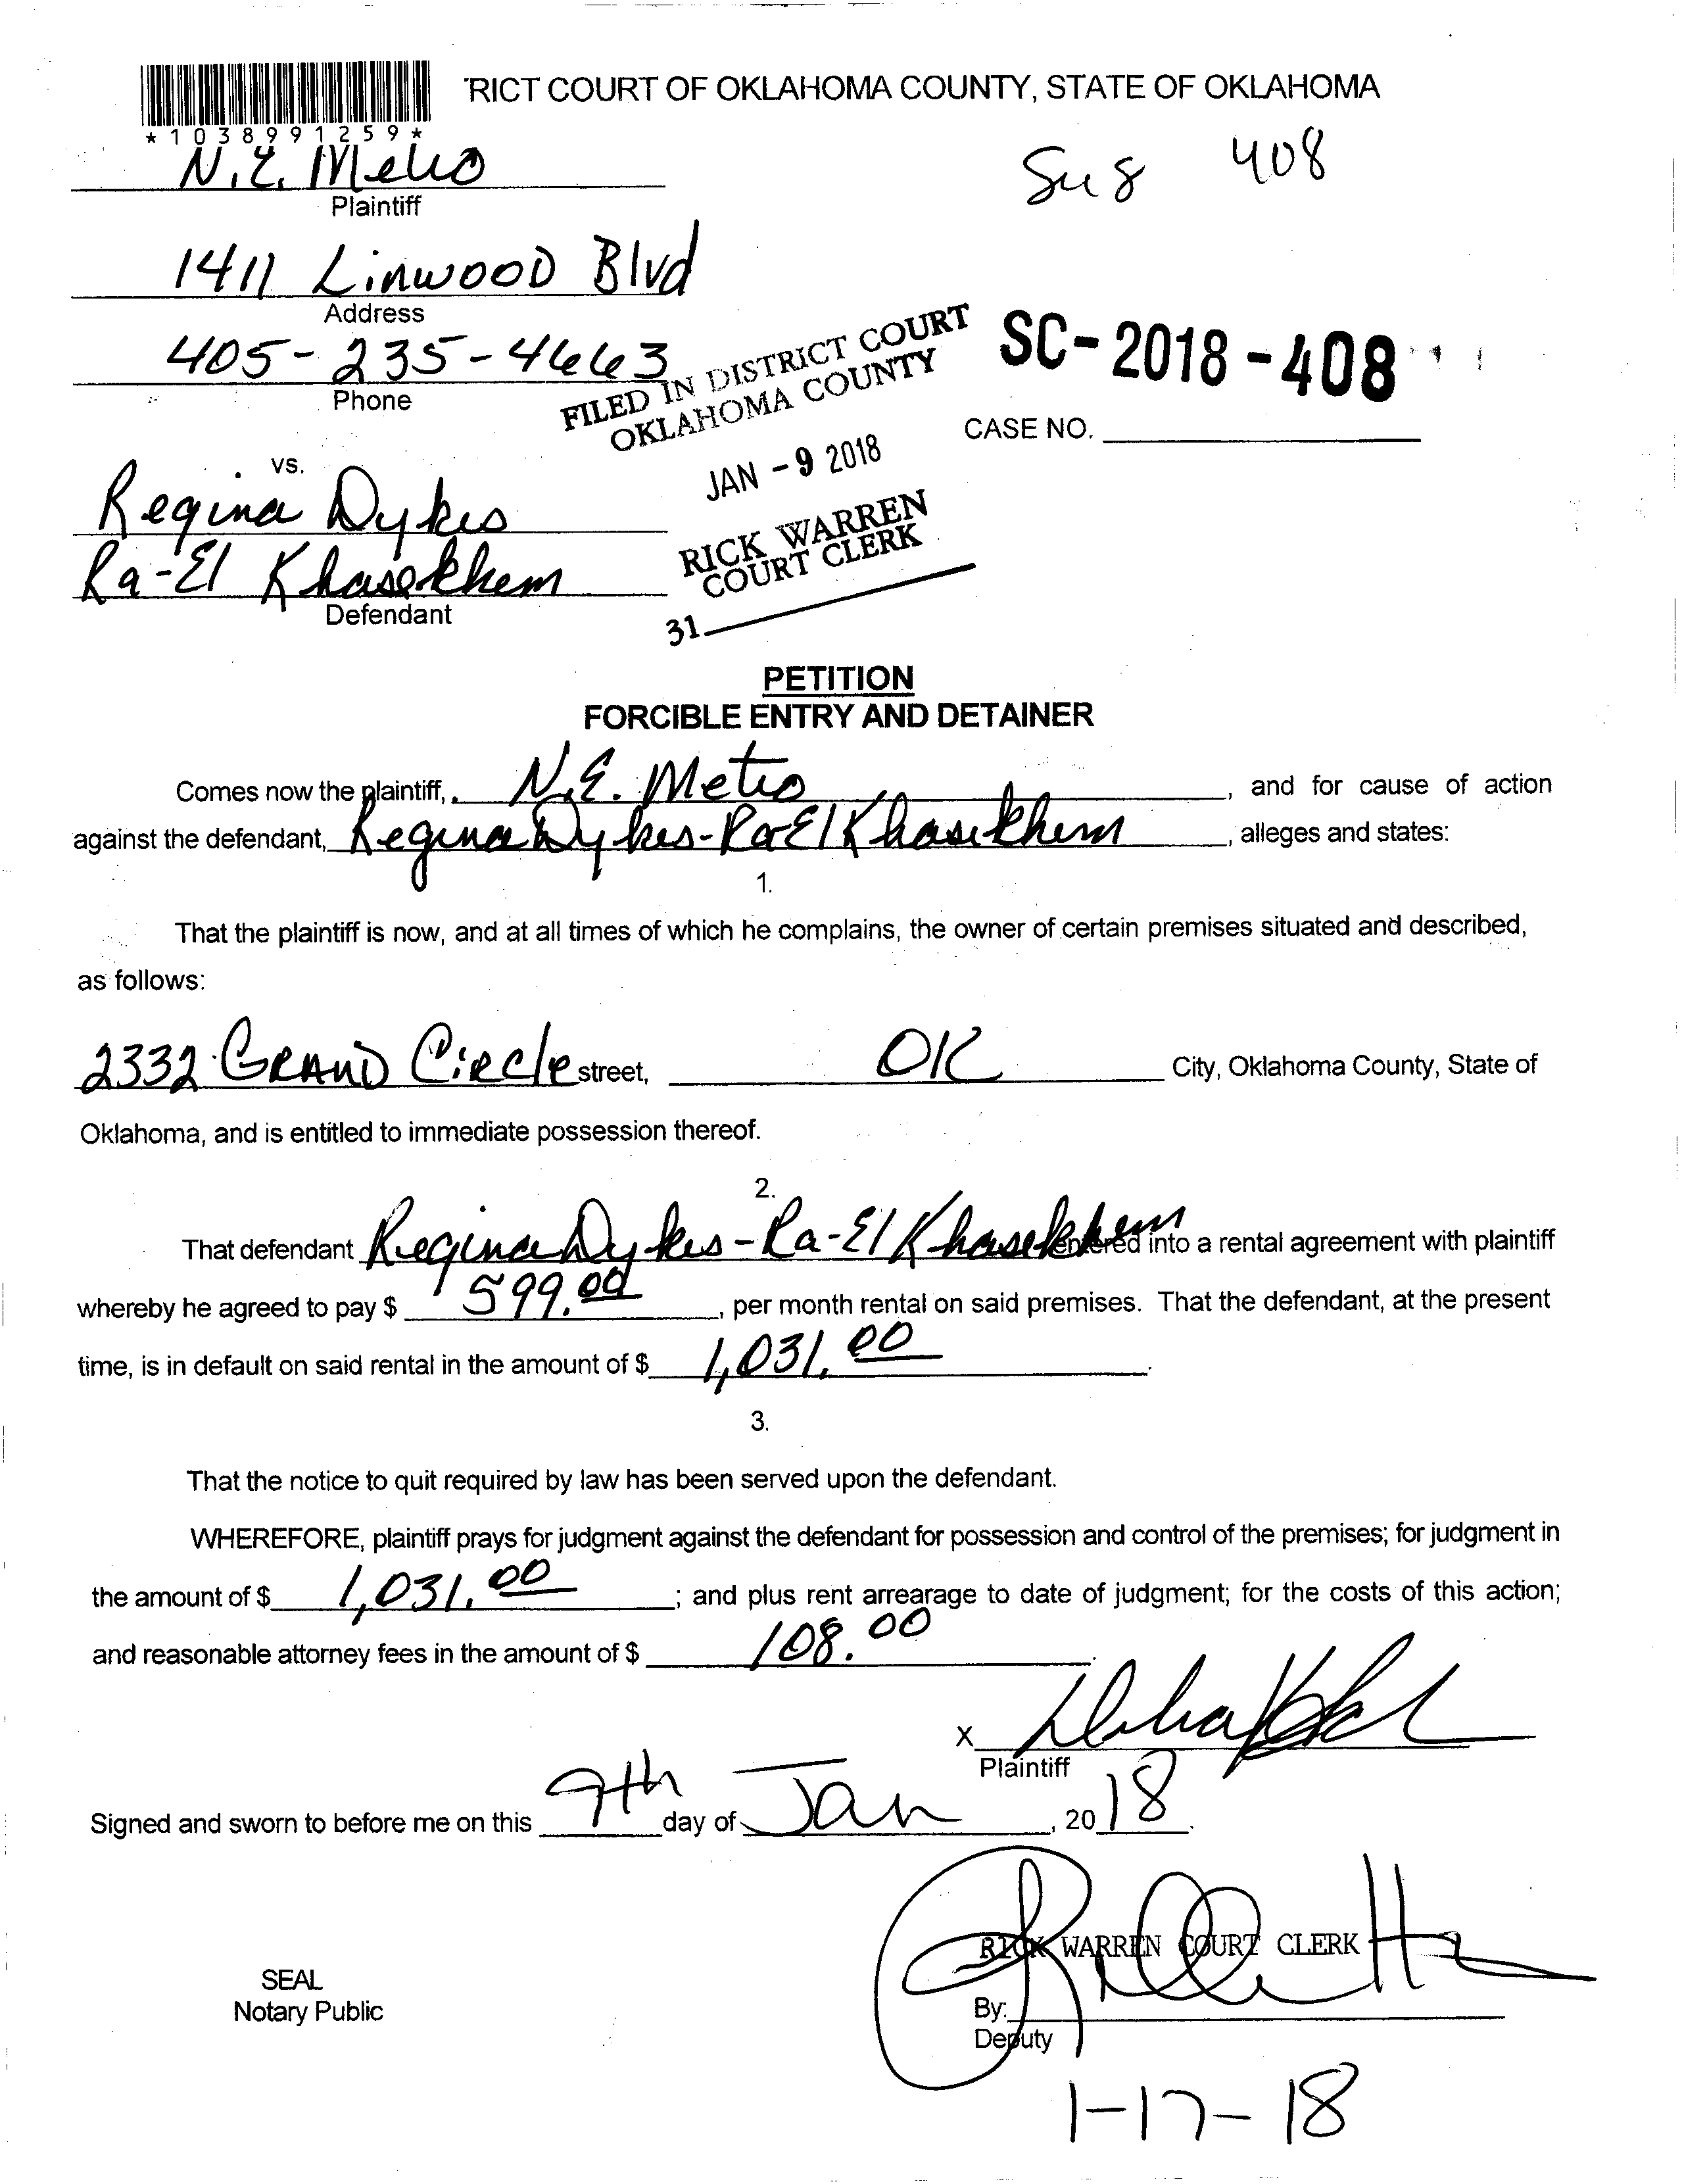 'RICT COURT OF OKLAHOMA COUNTY, STATE OF OKLAHOMA
*1038991259*
N.E. Metro
Plaintiff
408
1411 Linwood Blvd
Address
405-235-4663
Phone
FILED IN DISTRICT COURT
OKLAHOMA COUNTY
JAN -9 2018
RICK WARREN
COURT CLERK
31
SC-2018-408
CASE NO.
vs.
Regina Dykes
Ra-El Khasekhem
Defendant
PETITION
FORCIBLE ENTRY AND DETAINER
Comes now the plaintiff, N.E. Metro, and for cause of action
against the defendant, Regina Dykes-Ra-El Khasekhem, alleges and states:
1.
That the plaintiff is now, and at all times of which he complains, the owner of certain premises situated and described,
as follows:
2332 Grand Circle street, OK City, Oklahoma County, State of
Oklahoma, and is entitled to immediate possession thereof.
2.
That defendant Regina Dykes-Ra-El Khasekhem entered into a rental agreement with plaintiff
whereby he agreed to pay $ 599.00, per month rental on said premises. That the defendant, at the present
time, is in default on said rental in the amount of $ 1,031.00.
3.
That the notice to quit required by law has been served upon the defendant.
WHEREFORE, plaintiff prays for judgment against the defendant for possession and control of the premises; for judgment in
the amount of $ 1,031.00; and plus rent arrearage to date of judgment; for the costs of this action;
and reasonable attorney fees in the amount of $ 108.00.
X
Plaintiff
Signed and sworn to before me on this 9th day of Jan, 2018.
RICK WARREN COURT CLERK
SEAL
Notary Public
By:
Deputy
1-17-18